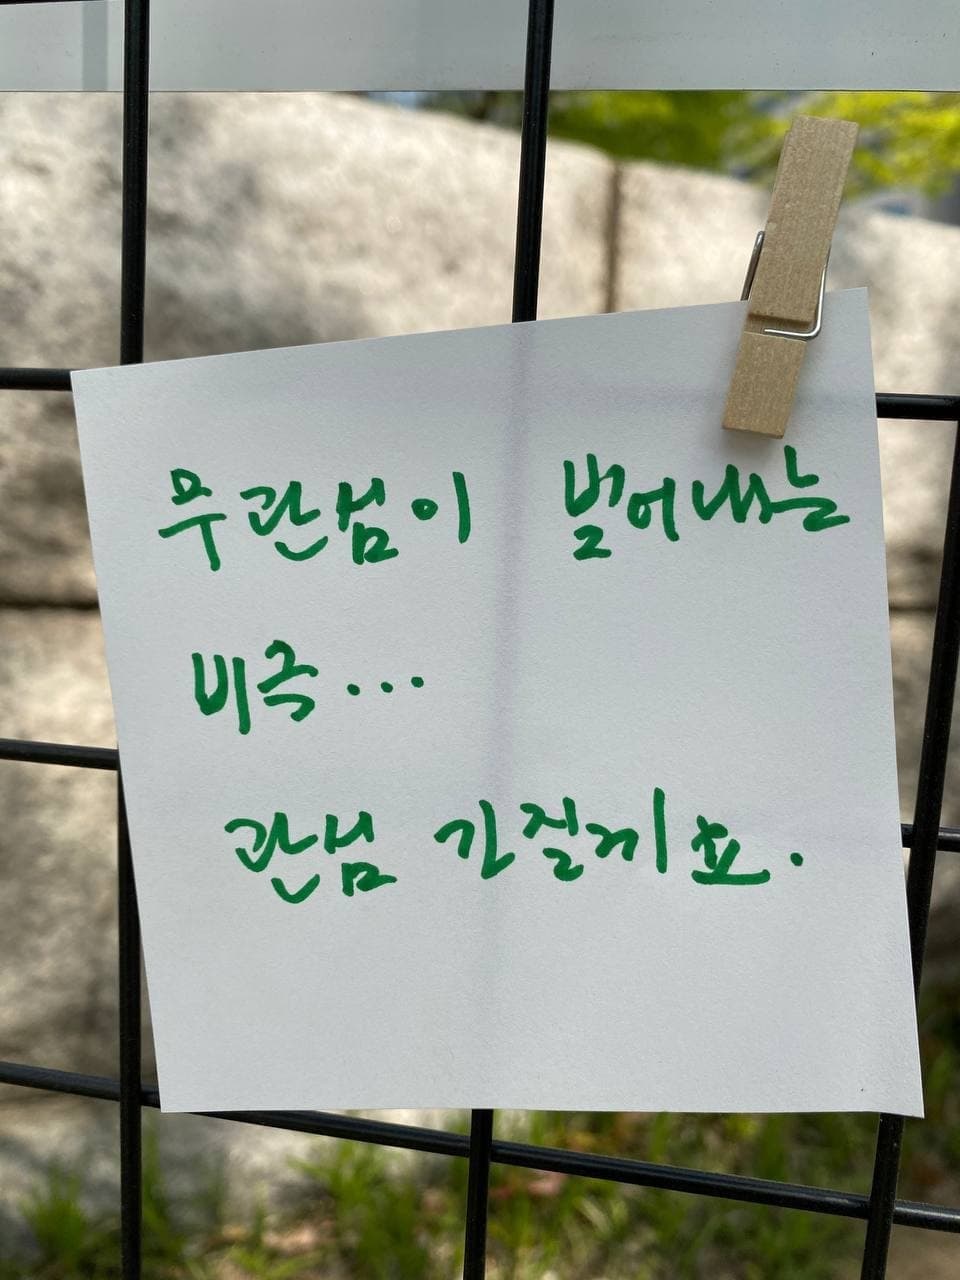 무관심이 빚어내는
비극...
관심 가질게요.